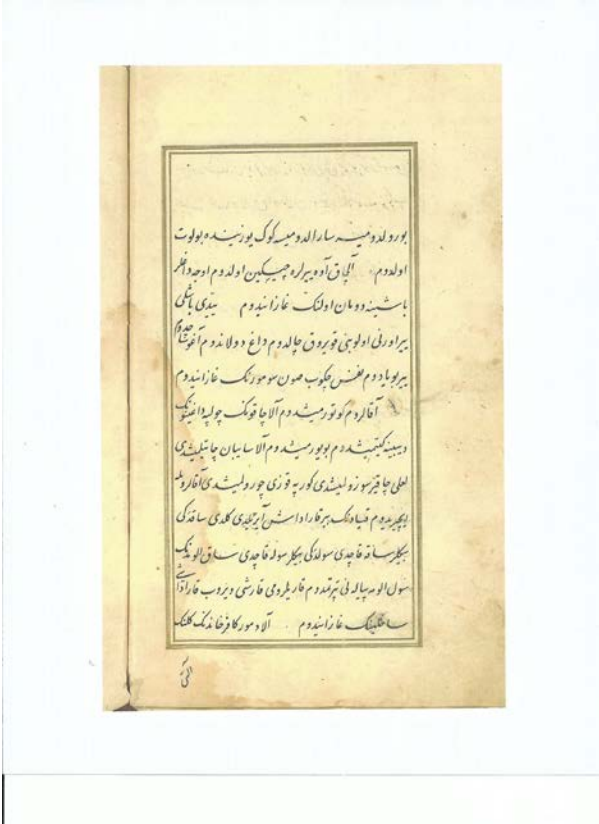 بورولدومیسه سارالدومیسه کوک یوزنیده بولوت
اولدوم آلچاق آده ییرلره چیسکین اولدوم اوجه داغلر
باشینه دومان اولنک غازانیدوم یتدی باشلی
ییر اورنی اولوبنی قویروق چالدوم داغ دولاندوم آغو ساچدوم
ییر بویادوم نفس چکوب صون سومورنک غازانیدوم
آقالروم کوتورمیشدوم آلاچاقونک چولپه داغینونک
دیبینه کیتمیشدوم بویورمیشدوم آلا سایبان چاتیلمیشدی
لعلی چاقیر سوزولمیشدی کورپه قوزی چورولمیشدی آقالرومله
ایچریدوم قیادنک بیر قاراداش آیریلدی کلدی ساقدکی
بیکلر ساقه قاچدی سولدکی بیکلر سوله قاچدی ساق الومدنک
سول الومه پیاله نی تپرتمدوم قاریلرومی قارشی ویروب قاراداشی
ساخلینک غازانیدوم آلا دمور کافر خاندنک کلنک